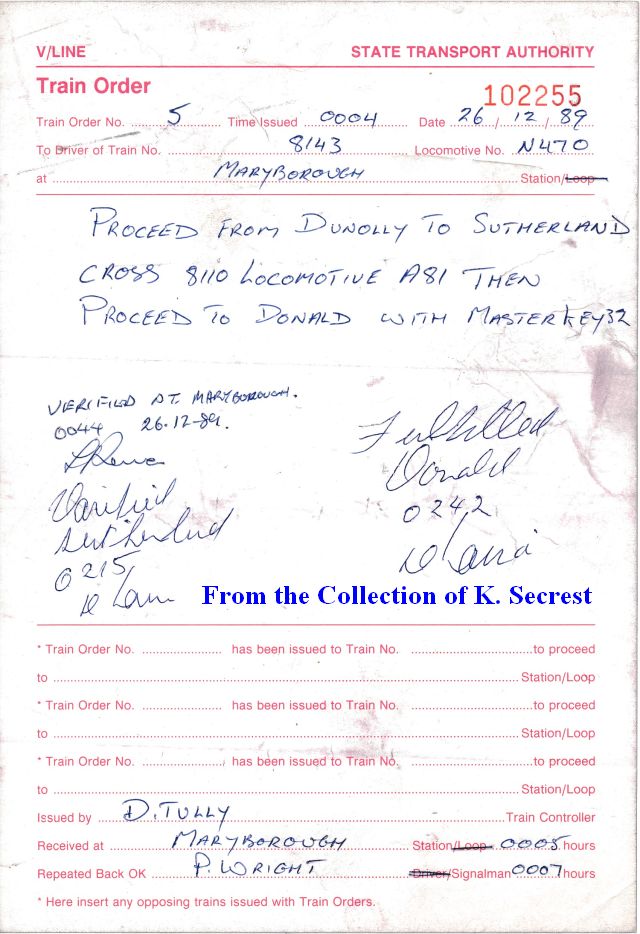 V/LINE STATE TRANSPORT AUTHORITY
Train Order
102255
Train Order No. 5 Time Issued 0004 Date 26 / 12 / 89
To Driver of Train No. 8143 Locomotive No. N470
at MARYBOROUGH Station/Loop
PROCEED FROM DUNOLLY TO SUTHERLAND
CROSS 8110 LOCOMOTIVE A81 THEN
PROCEED TO DONALD WITH MASTER KEY 32
VERIFILED AT MARYBOROUGH.
0044 26-12-89.
Verified
Sutherland
0215
Fulfilled
Donald
0242
From the Collection of K. Secrest
* Train Order No. has been issued to Train No. to proceed
to Station/Loop
* Train Order No. has been issued to Train No. to proceed
to Station/Loop
* Train Order No. has been issued to Train No. to proceed
to Station/Loop
Issued by D. TULLY Train Controller
Received at MARYBOROUGH Station/Loop 0005 hours
Repeated Back OK P. WRIGHT Driver/Signalman 0007 hours
* Here insert any opposing trains issued with Train Orders.